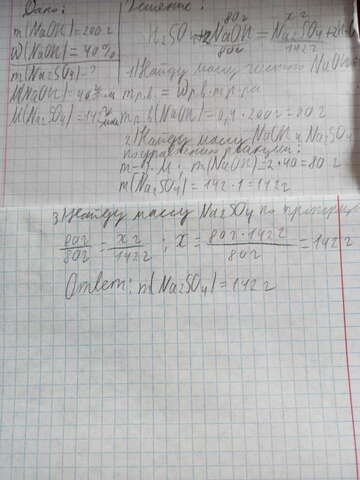 Дано:
Решение:
m(NaOH)=200 г
W(NaOH)=40%
m(Na₂SO₄)-?
M(NaOH)=40 г/м
M(Na₂SO₄)=142 г/моль
80 г x г
H₂SO₄+2NaOH=Na₂SO₄+2H₂O
80 г 142 г
1) Найду массу чистого NaOH
m р.в.=Wр.в.·mр-ра
m р.в(NaOH)=0,4·200 г=80 г
2) Найду массу NaOH и Na₂SO₄
по уравнению реакции:
m=n·M; m(NaOH)=2·40=80 г
m(Na₂SO₄)=142·1=142 г
3) Найду массу Na₂SO₄ по пропорции
80 г/80 г=x г/142 г; x=80 г·142 г/80 г=142 г
Ответ: m(Na₂SO₄)=142 г